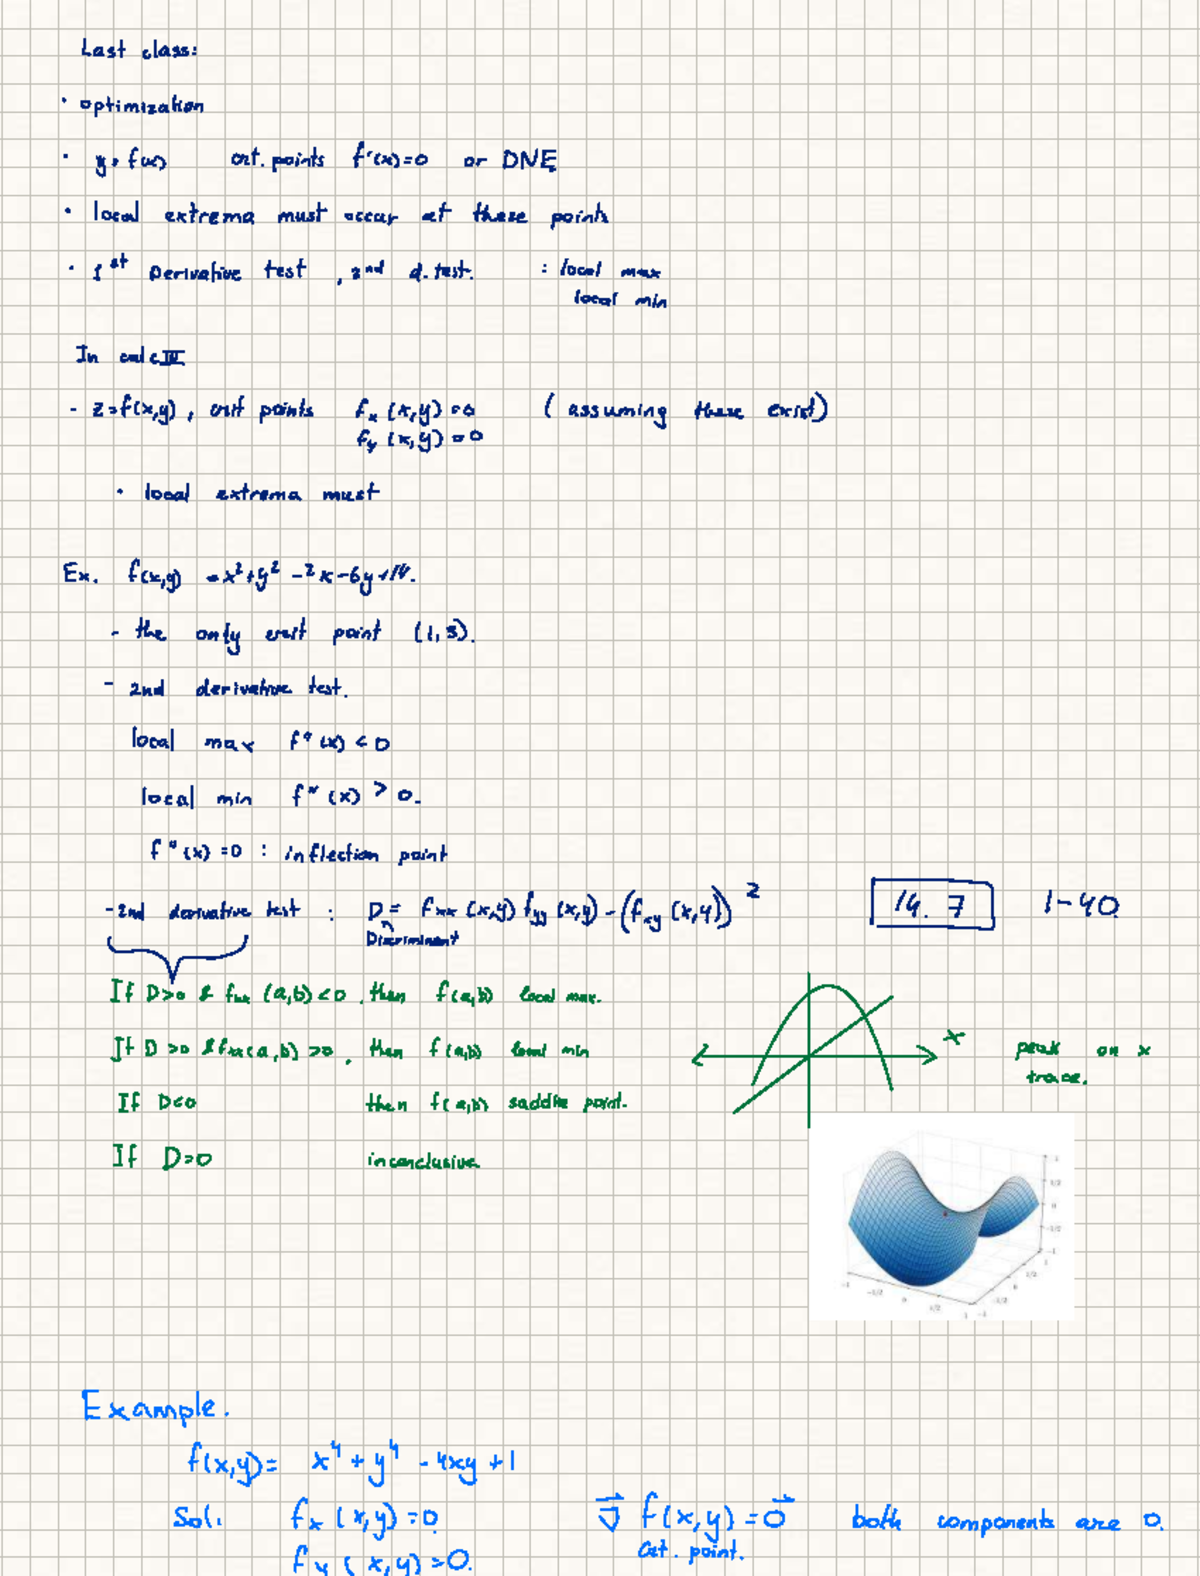 Last class:
• optimization
• y = f(x) crt. points f'(x)=0 or DNE
• local extrema must occur at these points
• 1st Derivative test , 2nd d. test. : local max
local min
In calc III
- z=f(x,y) , crit points fx (x,y) =0 ( assuming these exist)
fy (x,y) =0
• local extrema must
Ex. f(x,y) = x² + y² - 2x - 6y + 14.
- the only crit point (1,3).
- 2nd derivative test.
local max f"(x) < 0
local min f"(x) > 0.
f"(x) = 0 : inflection point
- 2nd derivative test : D = fxx (x,y) fyy (x,y) - (fxy (x,y))² 14.7 1-40
Discriminant
If D>0 & fxx (a,b) <0 , then f(a,b) local max.
If D>0 & fxx(a,b) >0 , then f(a,b) local min x peak on x
trace.
If D<0 then f(a,b) saddle point.
If D=0 inconclusive
1
1/2
0
-1/2
-1
-1 -1/2 0 1/2 1 -1 -1/2 0 1/2 1
Example.
f(x,y) = x⁴ + y⁴ - 4xy + 1
Sol. fx (x,y) = 0 ∇ f(x,y) = 0 both components are 0.
fy (x,y) = 0. crt. point.